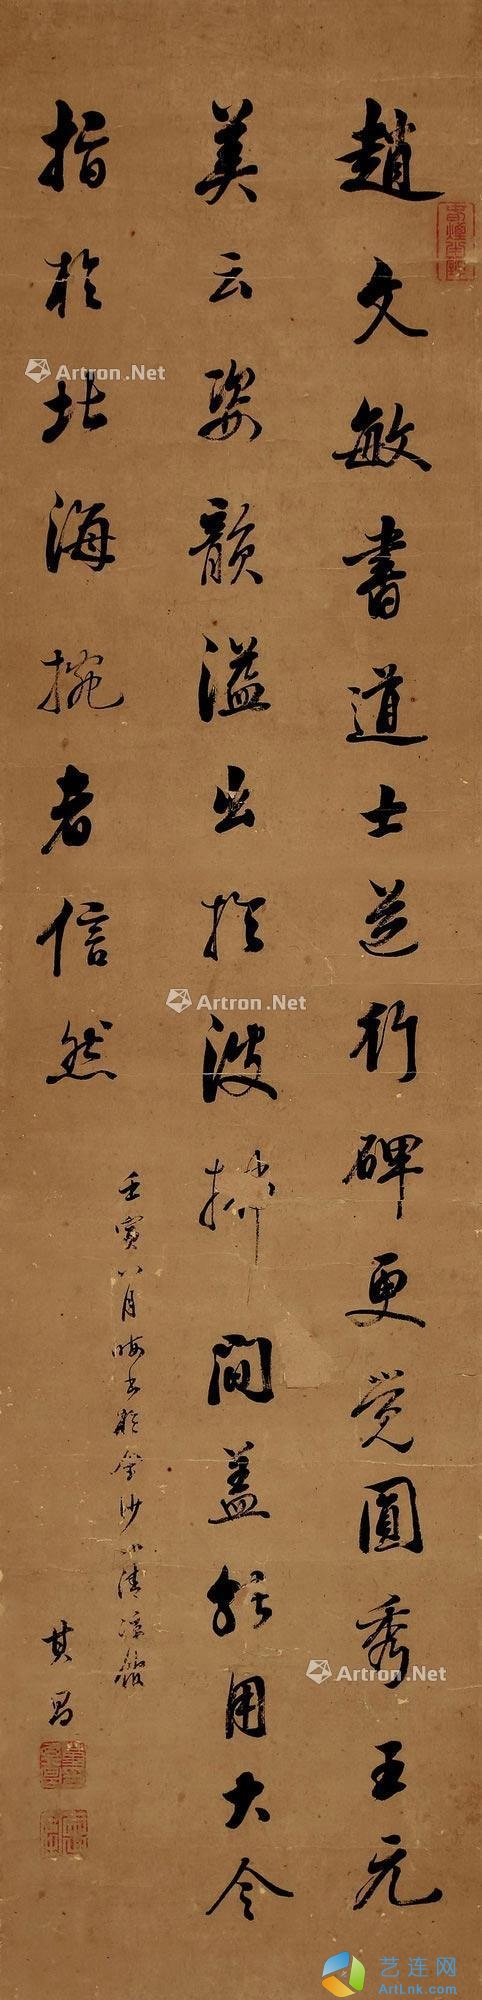 趙文敏書道士道行碑更覺圓秀王元
美云姿韻溢出於波拂間蓋能用大令
指於北海捥者信然
壬寅八月晦書於金沙小清凉館
其昌
Artron.Net
Artron.Net
Artron.Net
艺连网
ArtLnk.com